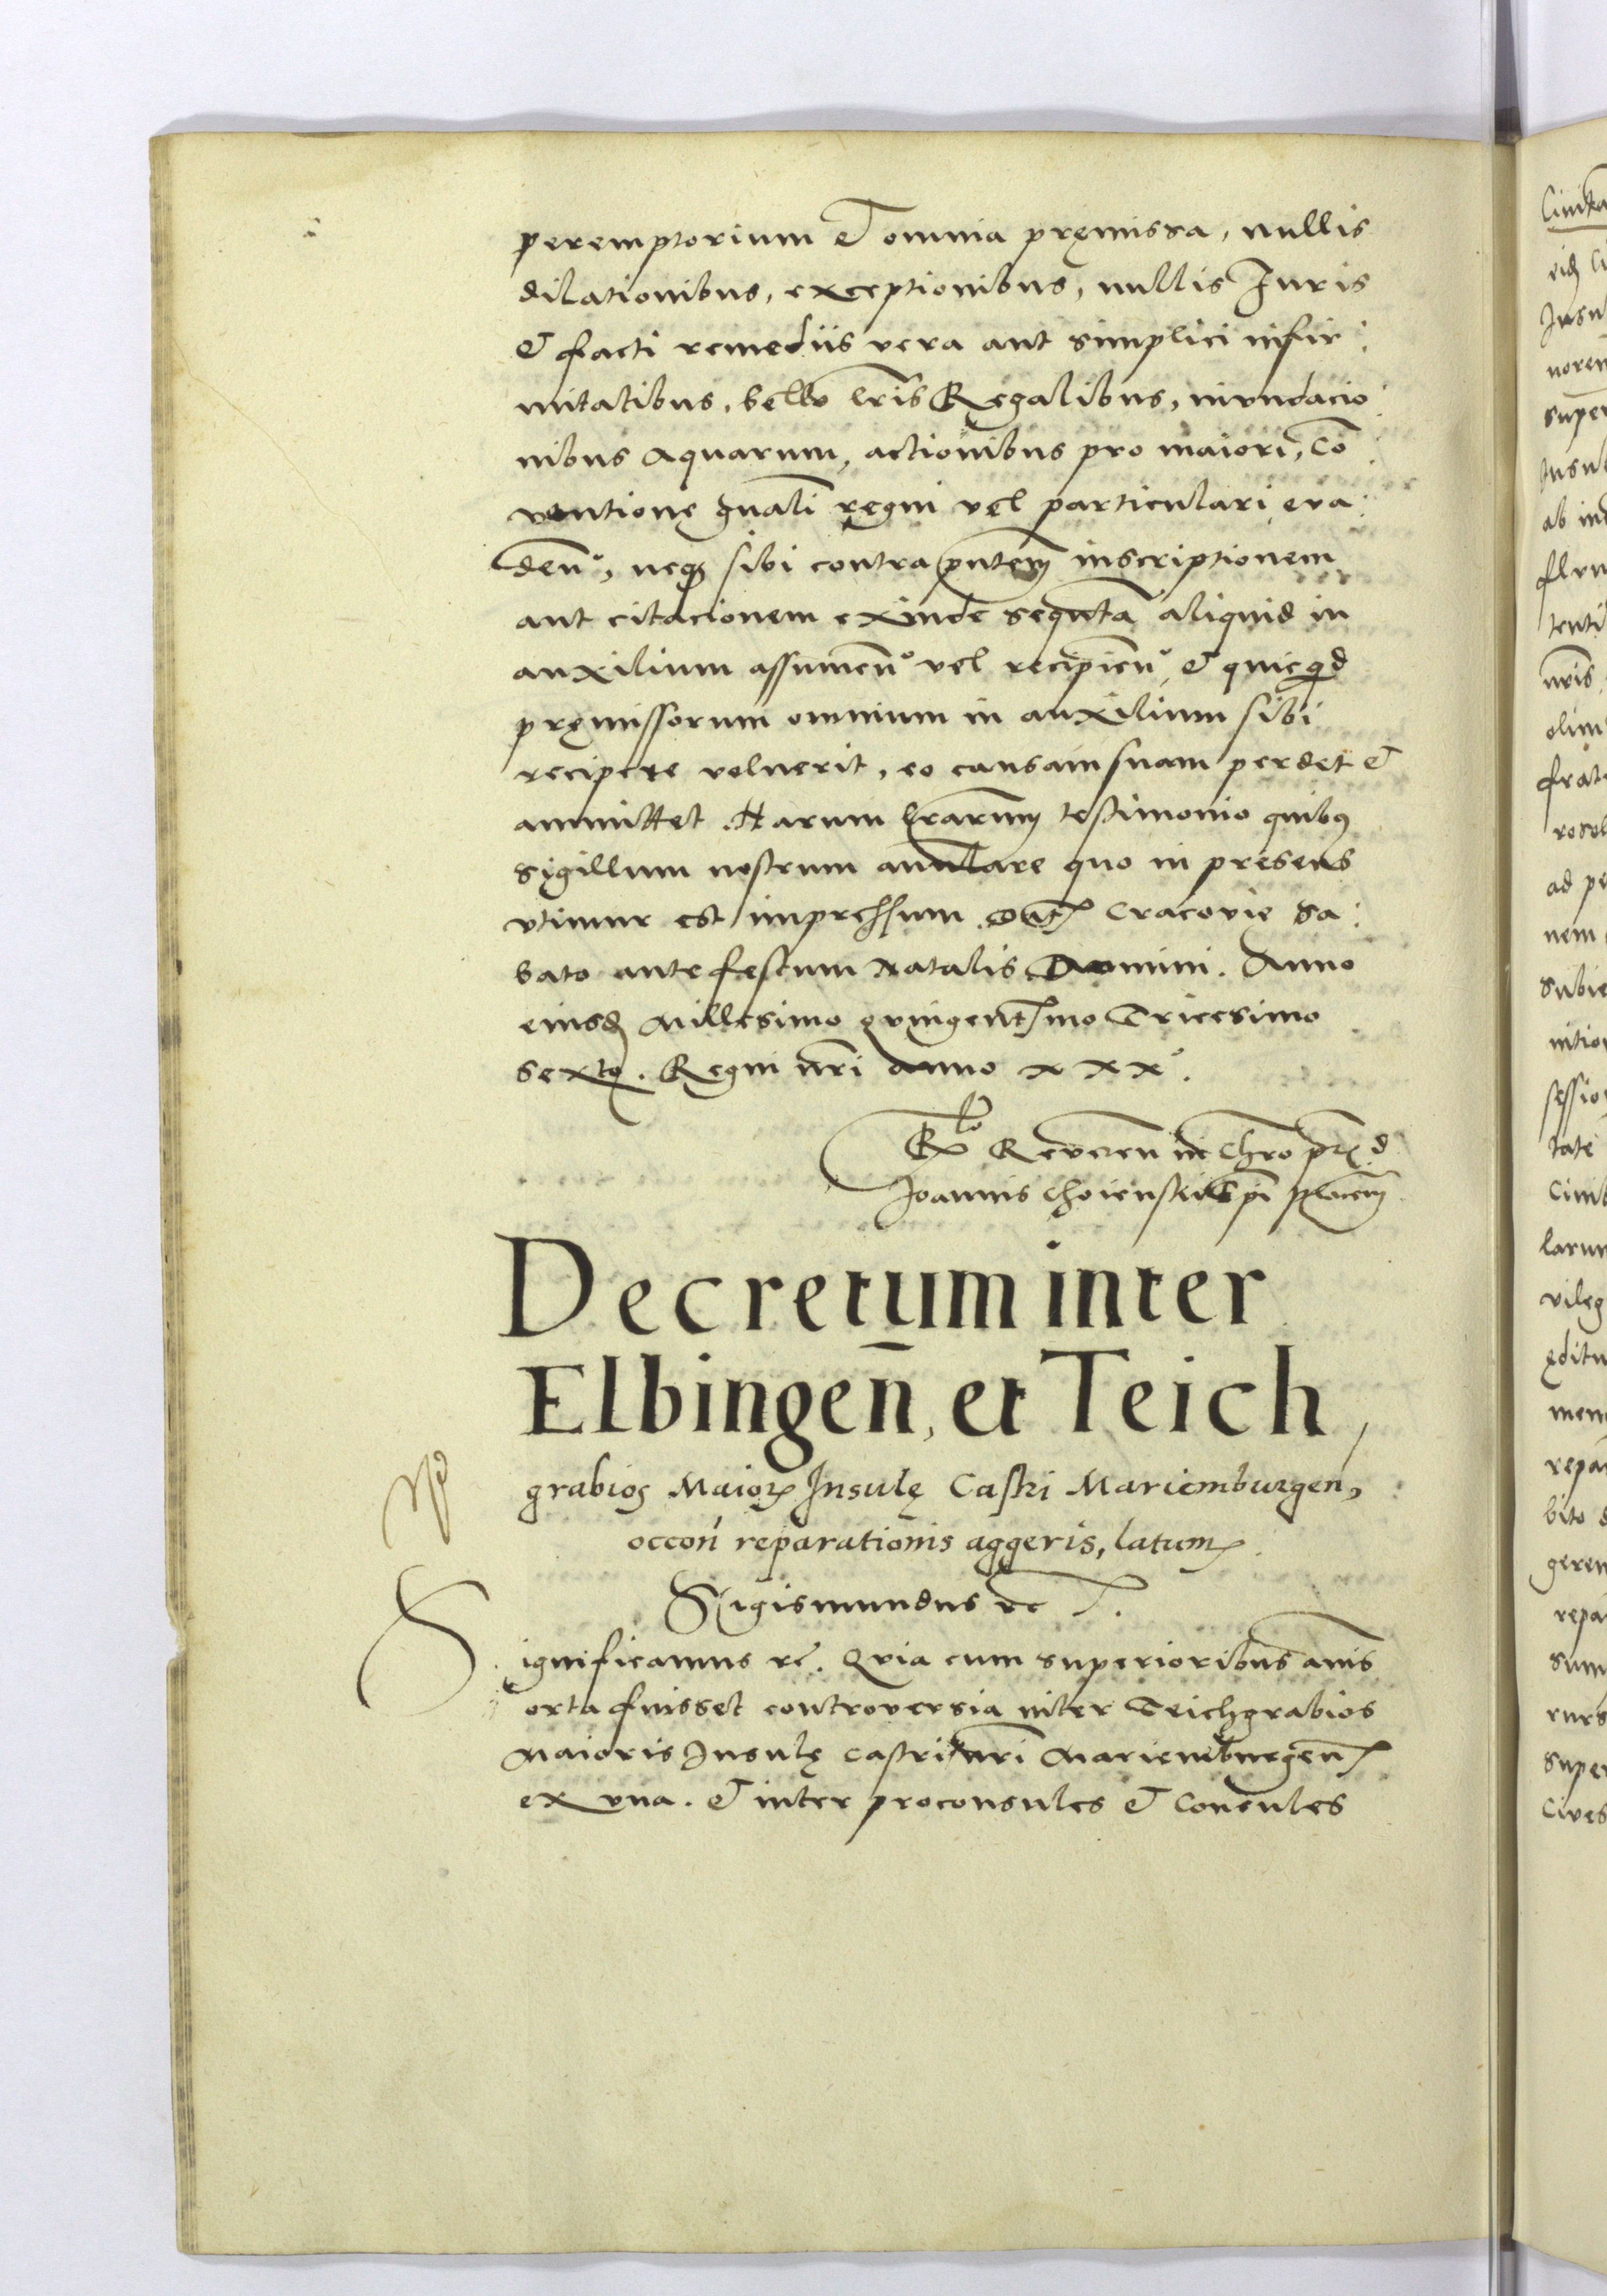 peremptorium et omnia pręmissa, nullis
dilationibus, exceptionibus, nullis Juris
et facti remediis vera aut simplici infir
mitatibus, bello lr̃is Regalibus, inundacio
nibus Aquarum, actionibus pro maiori, Cõ
ventionę gnãli regni vel particulari eva
den̄, neq3 sibi contra pñtem inscriptionem
aut citacionem exinde sequtã aliquid in
auxilium assumen̄ vel recipien̄ et quicq̃d
pręmissorum omnium in auxilium sibi
recipere voluerit, eo causam suam perdet et
ammittet. Harum lr̃arum testimonio quib9
sigillum nostrum anulare quo in presens
vtimur est impressum. Dat̃ Cracovię Sa
bato ante festum Natalis Domini. Anno
eiusd̃ Millesimo quingentesimo Tricesimo
sexto. Regni nr̃i Anno xxx°.
Rlo Reveren in Chro pr̃s d
Joannis Choienski Epi plocen̄
Decretum inter
Elbingen̄, et Teich
grabios Maior̃ Insulę Castri Mariemburgen,
occon̄ reparationis aggeris, latum
Sigismundus etc
Significamus etc. Quia cum superioribus anis
orta fuisset controversia inter Teichgrabios
Maioris Insulę Castri nr̃i Mariemburgen̄
ex una. et inter proconsules et Consules